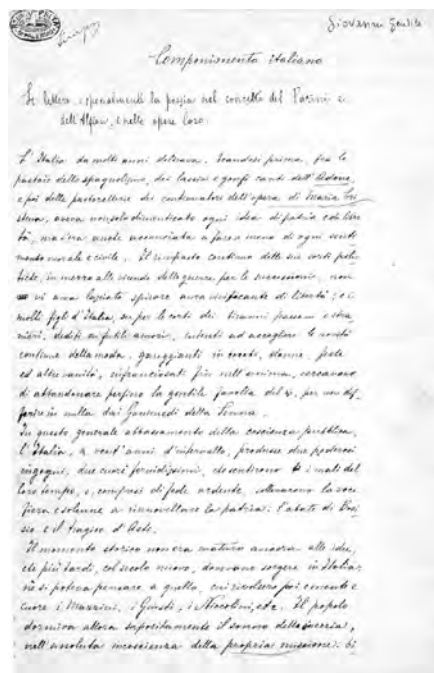 Giovanni Gentile
Componimento italiano
Le lettere e specialmente la poesia nel concetto del Parini e
dell'Alfieri, e nelle opere loro.
L'Italia da molti anni delirava. Evandesi prima, fra le
pastoie dello spagnolismo, dei lascivi e gonfi canti dell'Adone,
e poi delle pastorellerie dei continuatori dell'opera di Maria Cri
stina, aveva non solo dimenticato ogni idea di patria e di liber
tà, ma s'era anche acconciata a fare a meno di ogni senti
mento morale e civile. Il rimpasto continuo delle sue sorti poli
tiche, in mezzo alle vicende delle guerre per le successioni, non
vi aveva lasciato spirare aura vivificante di libertà; e i
molli figli d'Italia, su per le corti dei tiranni paesani e stra
nieri, dediti a futili amori, intenti ad accogliere le novità
continue della moda, gareggianti in cocchi, donne, feste
ed altre vanità, infranciosati fin nell'anima, cercavano
di abbandonare perfino la gentile favella del sì, per non dif
ferire in nulla dai Ganimedi della Senna.
In questo generale abbassamento della coscienza pubblica,
l'Italia, a vent'anni d'intervallo, produsse due poderosi
ingegni, due cuori fervidissimi, che sentirono i mali del
loro tempo, e, compresi di fede ardente, alzarono la voce
fiera e solenne a rinnovellare la patria: l'abate di Bosi
sio e il tragico d'Asti.
Il momento storico non era maturo ancora alle idee,
che più tardi, col secolo nuovo, dovevano sorgere in Italia;
nè si poteva pensare a quello, cui rivolsero poi mente e
cuore i Mazzini, i Giusti, i Niccolini, etc. Il popolo
dormiva allora saporitamente il sonno dell'inerzia,
nell'insolente incoscienza della propria missione: bi